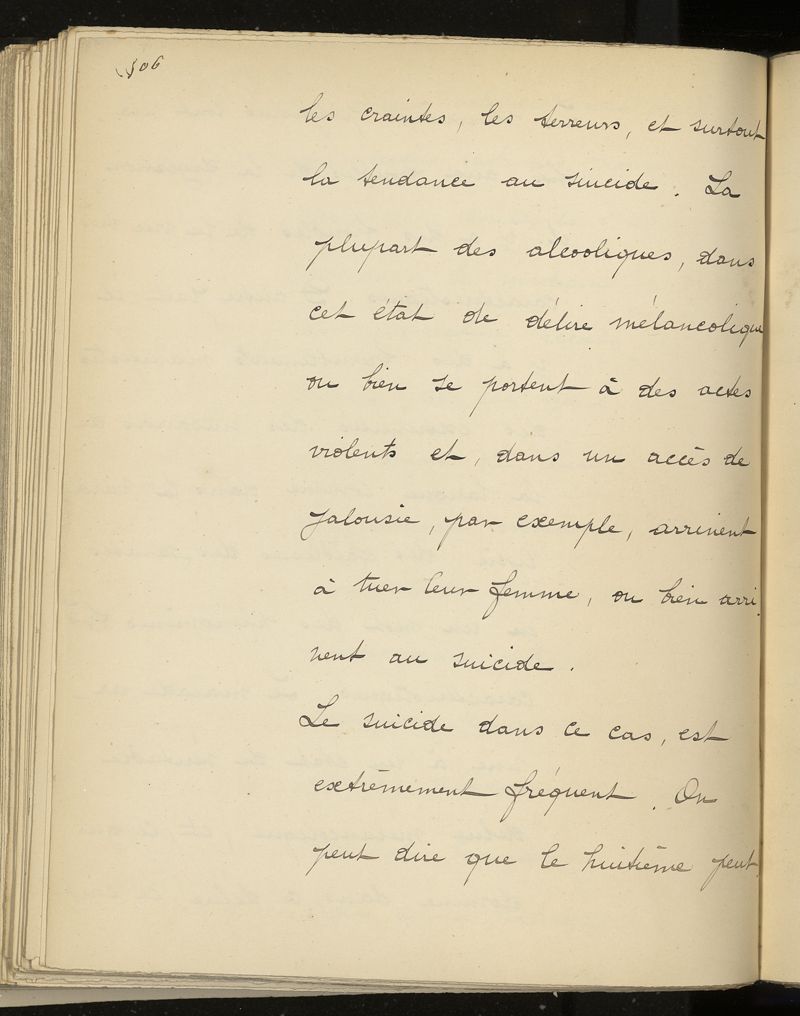 les craintes, les terreurs, et surtout
la tendance au suicide. La
plupart des alcooliques, dans
cet état de délire mélancolique
ou bien se portent à des actes
violents et, dans un accès de
jalousie, par exemple, arrivent
à tuer leur femme, ou bien arri
vent au suicide.
Le suicide dans ce cas, est
extrêmement fréquent. On
peut dire que le huitième peut